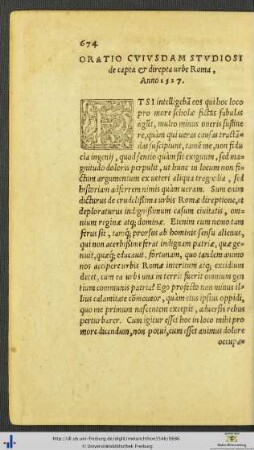 674
ORATIO CVIVSDAM STVDIOSI
de capta & direpta urbe Roma,
Anno 1527.
ETSI intelligebā eos qui hoc loco
pro more scholæ fictis fabulas
agūt, multo minus oneris sustine
re, quàm qui ueras causas tractā-
das suscipiunt, tamē me, non fidu
cia ingenij, quod sentio quàm sit exiguum, sed ma-
gnitudo doloris perpulit, ut huc in locum non fi-
ctum argumentum ex ueteri aliqua tragœdia, sed
historiam adferrem nimis quàm ueram. Sum enim
dicturus de crudelissima urbis Romæ direptione, et
deploraturus indignissimum casum ciuitatis, om-
nium regina atq; domina. Etenim cum nouo tam
ferus sit, tamq; prorsus ab hominis sensu alienus,
qui non acerbissime ferat indignam patriæ, quæ ge-
nuit, quæq; educauit, fortunam, quo tandem animo
nos accipere urbis Romæ interitum atq; excidium
decet, cum ea urbs una in terris fuerit omnium gen
tium communis patria? Ego profecto non minus il-
lius calamitate cōmoueor, quàm eius ipsius oppidi,
quo me primum nascentem excepit, aduersis rebus
perturbarer. Cum igitur esset hoc in loco mihi pro
more dicendum, non potui, cum esset animus dolore
occupa-
http://dl.ub.uni-freiburg.de/diglit/melanchthon1546/0686
© Universitätsbibliothek Freiburg